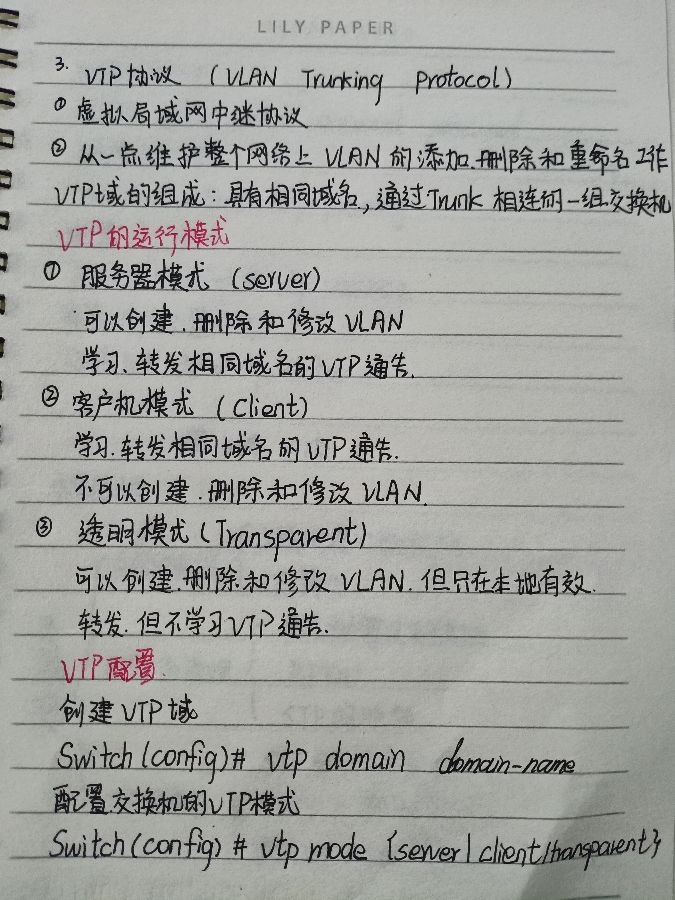 LILY PAPER
3. VTP协议 (VLAN Trunking Protocol)
① 虚拟局域网中继协议
② 从一点维护整个网络上 VLAN 的添加.删除和重命名工作
VTP域的组成：具有相同域名，通过Trunk 相连的一组交换机
VTP的运行模式
① 服务器模式 (server)
可以创建.删除和修改 VLAN
学习、转发相同域名的VTP通告.
② 客户机模式 (Client)
学习.转发相同域名的VTP通告.
不可以创建.删除和修改 VLAN.
③ 透明模式 (Transparent)
可以创建.删除和修改 VLAN. 但只在本地有效.
转发.但不学习VTP通告.
VTP配置.
创建VTP域
Switch(config)# vtp domain domain-name
配置交换机的VTP模式
Switch(config)# vtp mode {server|client/transparent}